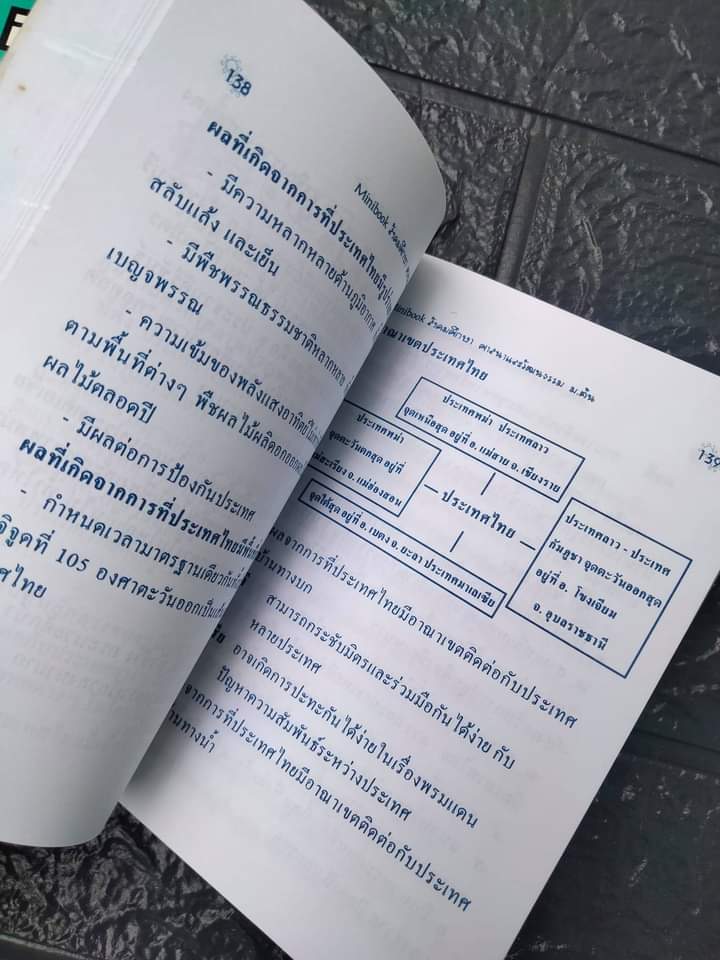 E
138
Minibook
ผลที่เกิดจากการที่ประเทศไทยมีรูป
- มีความหลากหลายด้านภูมิอากาศ
สลับแล้ง และเย็น
- มีพืชพรรณธรรมชาติหลากหลาย
เบญจพรรณ
- ความเข้มของพลังแสงอาทิตย์
ตามพื้นที่ต่างๆ พืชผลไม้ผลิดอกออก
ผลไม้ตลอดปี
- มีผลต่อการป้องกันประเทศ
ผลที่เกิดจากการที่ประเทศไทยมี
- กำหนดเวลามาตรฐานเดียวกัน
จิจูดที่ 105 องศาตะวันออกเป็น
ศไทย
Minibook สังคมศึกษา ศาสนาและวัฒนธรรม ม.ต้น
139
อาณาเขตประเทศไทย
ประเทศพม่า ประเทศลาว
จุดเหนือสุด อยู่ที่ อ. แม่สาย จ. เชียงราย
ประเทศพม่า
จุดตะวันตกสุด อยู่ที่
แม่สะเรียง จ. แม่ฮ่องสอน
ประเทศไทย
ประเทศลาว - ประเทศ
กัมพูชา จุดตะวันออกสุด
อยู่ที่ อ. โขงเจียม
จ. อุบลราชธานี
จุดใต้สุด อยู่ที่ อ. เบตง จ. ยะลา ประเทศมาเลเซีย
ผลจากการที่ประเทศไทยมีอาณาเขตติดต่อกับประเทศ
บ้านทางบก
สามารถกระชับมิตรและร่วมมือกันได้ง่าย กับ
หลายประเทศ
อาจเกิดการปะทะกันได้ง่ายในเรื่องพรมแดน
ปัญหาความสัมพันธ์ระหว่างประเทศ
จากการที่ประเทศไทยมีอาณาเขตติดต่อกับประเทศ
านทางน้ำ